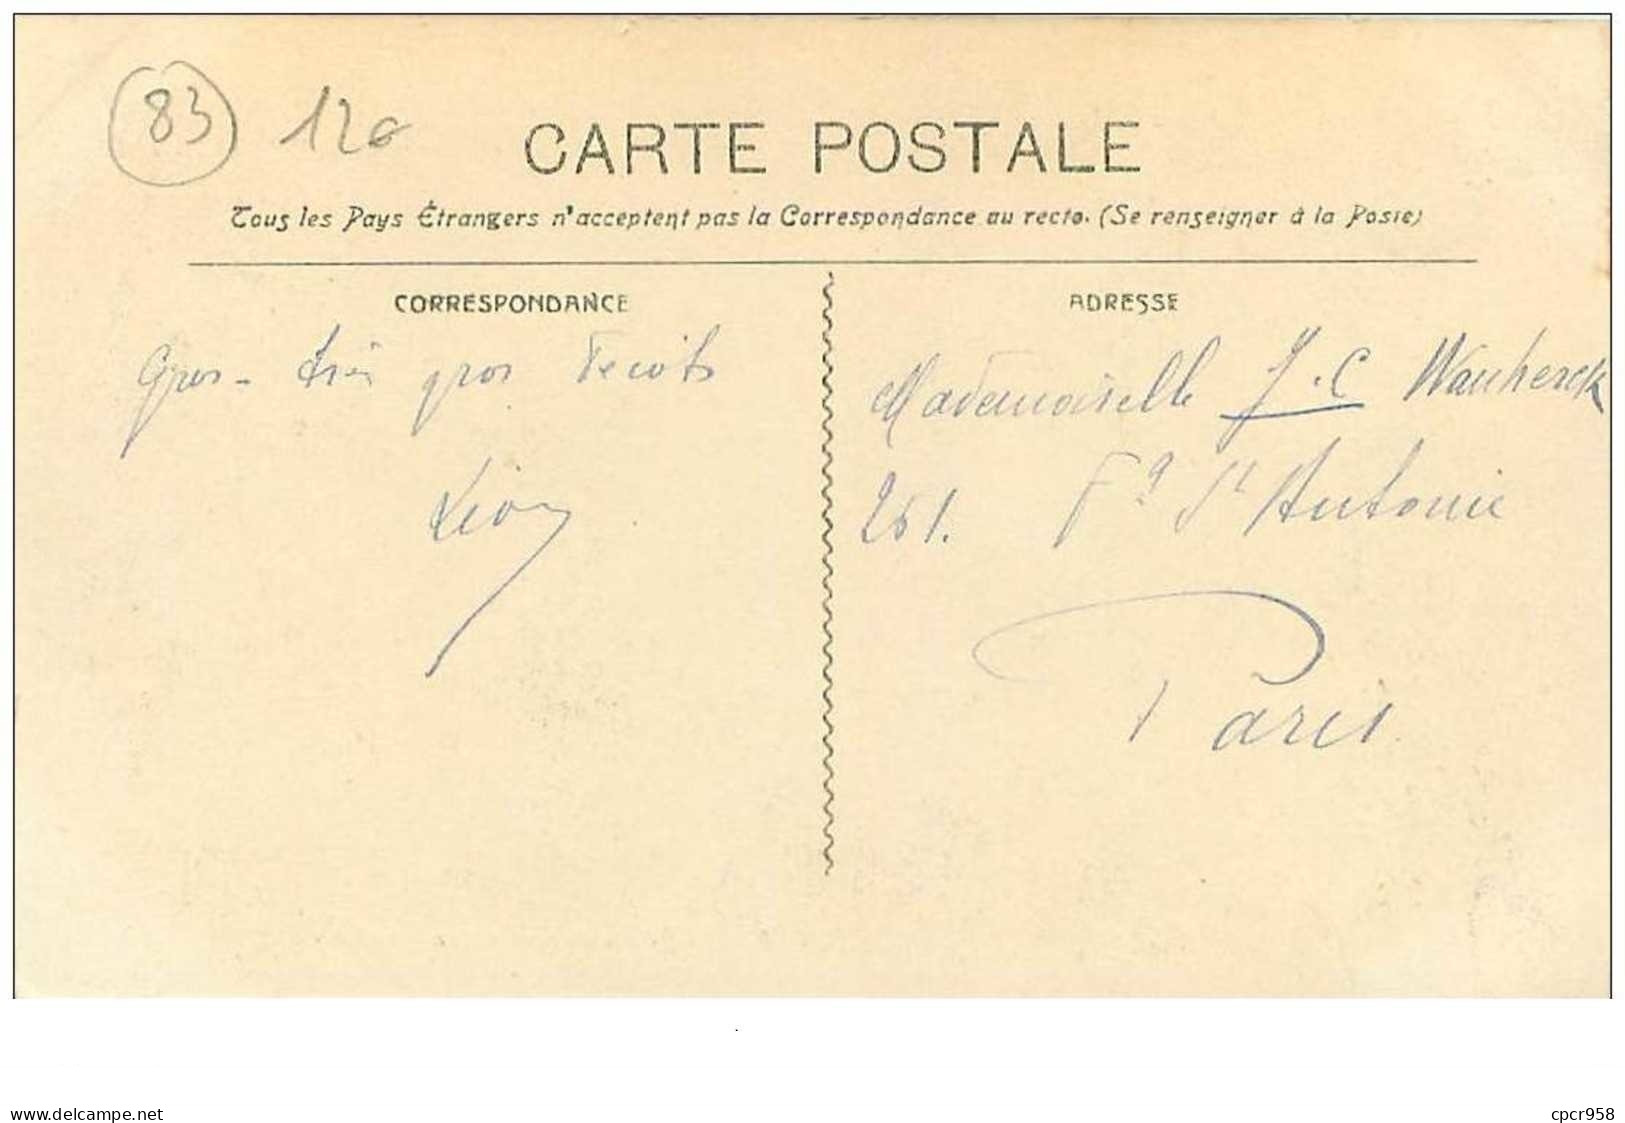 83 120
CARTE POSTALE
Tous les Pays Étrangers n'acceptent pas la Correspondance au recto. (Se renseigner à la Poste)
CORRESPONDANCE
Gros - très gros
Léon
ADRESSE
Mademoiselle J.C
251. Fg St Antoine
Paris
www.delcampe.net
cpcr958